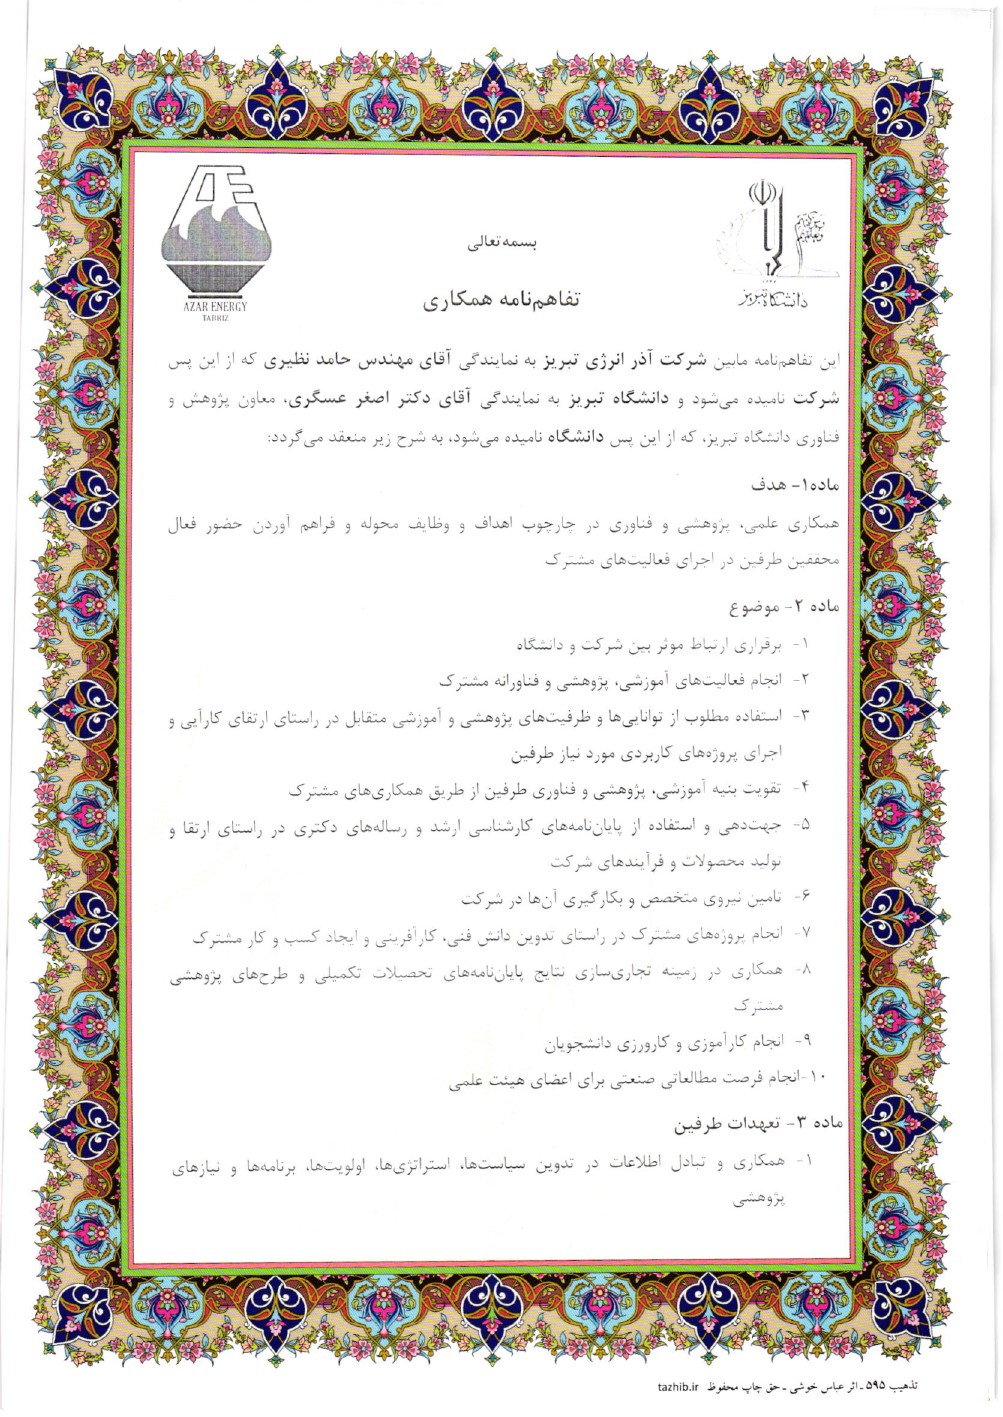 بسمه تعالی
تفاهم‌نامه همکاری
AZAR ENERGY
TABRIZ
دانشگاه تبریز
این تفاهم‌نامه مابین شرکت آذر انرژی تبریز به نمایندگی آقای مهندس حامد نظیری که از این پس
شرکت نامیده می‌شود و دانشگاه تبریز به نمایندگی آقای دکتر اصغر عسگری، معاون پژوهش و
فناوری دانشگاه تبریز، که از این پس دانشگاه نامیده می‌شود، به شرح زیر منعقد می‌گردد:
ماده۱- هدف
همکاری علمی، پژوهشی و فناوری در چارچوب اهداف و وظایف محوله و فراهم آوردن حضور فعال
محققین طرفین در اجرای فعالیت‌های مشترک
ماده ۲- موضوع
۱- برقراری ارتباط موثر بین شرکت و دانشگاه
۲- انجام فعالیت‌های آموزشی، پژوهشی و فناورانه مشترک
۳- استفاده مطلوب از توانایی‌ها و ظرفیت‌های پژوهشی و آموزشی متقابل در راستای ارتقای کارآیی و
اجرای پروژه‌های کاربردی مورد نیاز طرفین
۴- تقویت بنیه آموزشی، پژوهشی و فناوری طرفین از طریق همکاری‌های مشترک
۵- جهت‌دهی و استفاده از پایان‌نامه‌های کارشناسی ارشد و رساله‌های دکتری در راستای ارتقا و
تولید محصولات و فرآیندهای شرکت
۶- تامین نیروی متخصص و بکارگیری آن‌ها در شرکت
۷- انجام پروژه‌های مشترک در راستای تدوین دانش فنی، کارآفرینی و ایجاد کسب و کار مشترک
۸- همکاری در زمینه تجاری‌سازی نتایج پایان‌نامه‌های تحصیلات تکمیلی و طرح‌های پژوهشی
مشترک
۹- انجام کارآموزی و کارورزی دانشجویان
۱۰-انجام فرصت مطالعاتی صنعتی برای اعضای هیئت علمی
ماده ۳- تعهدات طرفین
۱- همکاری و تبادل اطلاعات در تدوین سیاست‌ها، استراتژی‌ها، اولویت‌ها، برنامه‌ها و نیازهای
پژوهشی
تذهیب ۵۹۵ ـ اثر عباس خوشی ـ حق چاپ محفوظ tazhib.ir